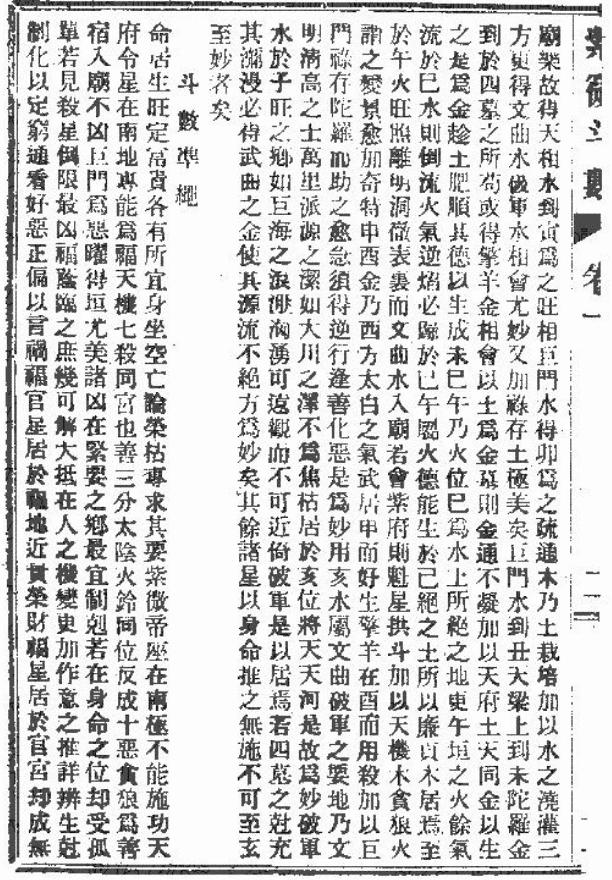 紫微斗數 卷一 二一
廟樂故得天相水到寅爲之旺相巨門水得卯爲之疏通木乃土栽培加以水之澆灌三
方更得文曲水破軍水相會尤妙又加祿存土極美矣巨門水到丑天梁土到未陀羅金
到於四墓之所苟或得擎羊金相會以土爲金墓則金通不凝加以天府土天同金以生
之是爲金趁土肥順其德以生成未巳午乃火位巳爲水土所絕之地更午垣之火餘氣
流於巳水則倒流火氣逆焰必歸於巳午屬火德能生於已絕之土所以廉貞木居焉至
於午火旺照離明洞徹表裏而文曲水入廟若會紫府則魁星拱斗加以天機木貪狼火
謂之變景愈加奇特申酉金乃西方太白之氣武居申而好生擎羊在酉而用殺加以巨
門祿存陀羅而助之愈急須得逆行逢善化惡是爲妙用亥水屬文曲破軍之要地乃文
明清高之士萬里派源之潔如大川之澤不爲焦枯居於亥位將入天河是故爲妙破軍
水於子旺之鄉如巨海之浪洶湧可遠觀而不可近倚破軍是以居焉若四墓之尅充
其瀰漫必得武曲之金使其源流不絕方爲妙矣其餘諸星以身命推之無施不可至玄
至妙者矣
斗數準繩
命居生旺定富貴各有所宜身坐空亡論榮枯專求其要紫微帝座在南極不能施功天
府令星在南地專能爲福天機七殺同宮也善三分太陰火鈴同位反成十惡貪狼爲善
宿入廟不凶巨門爲惡曜得垣尤美諸凶在緊要之鄉最宜制剋若在身命之位却受孤
單若見殺星倒限最凶福蔭臨之庶幾可解大抵在人之機變更加作意之推詳辨生尅
制化以定窮通看好惡正偏以言禍福官星居於福地近貴榮財福星居於官宮却成無